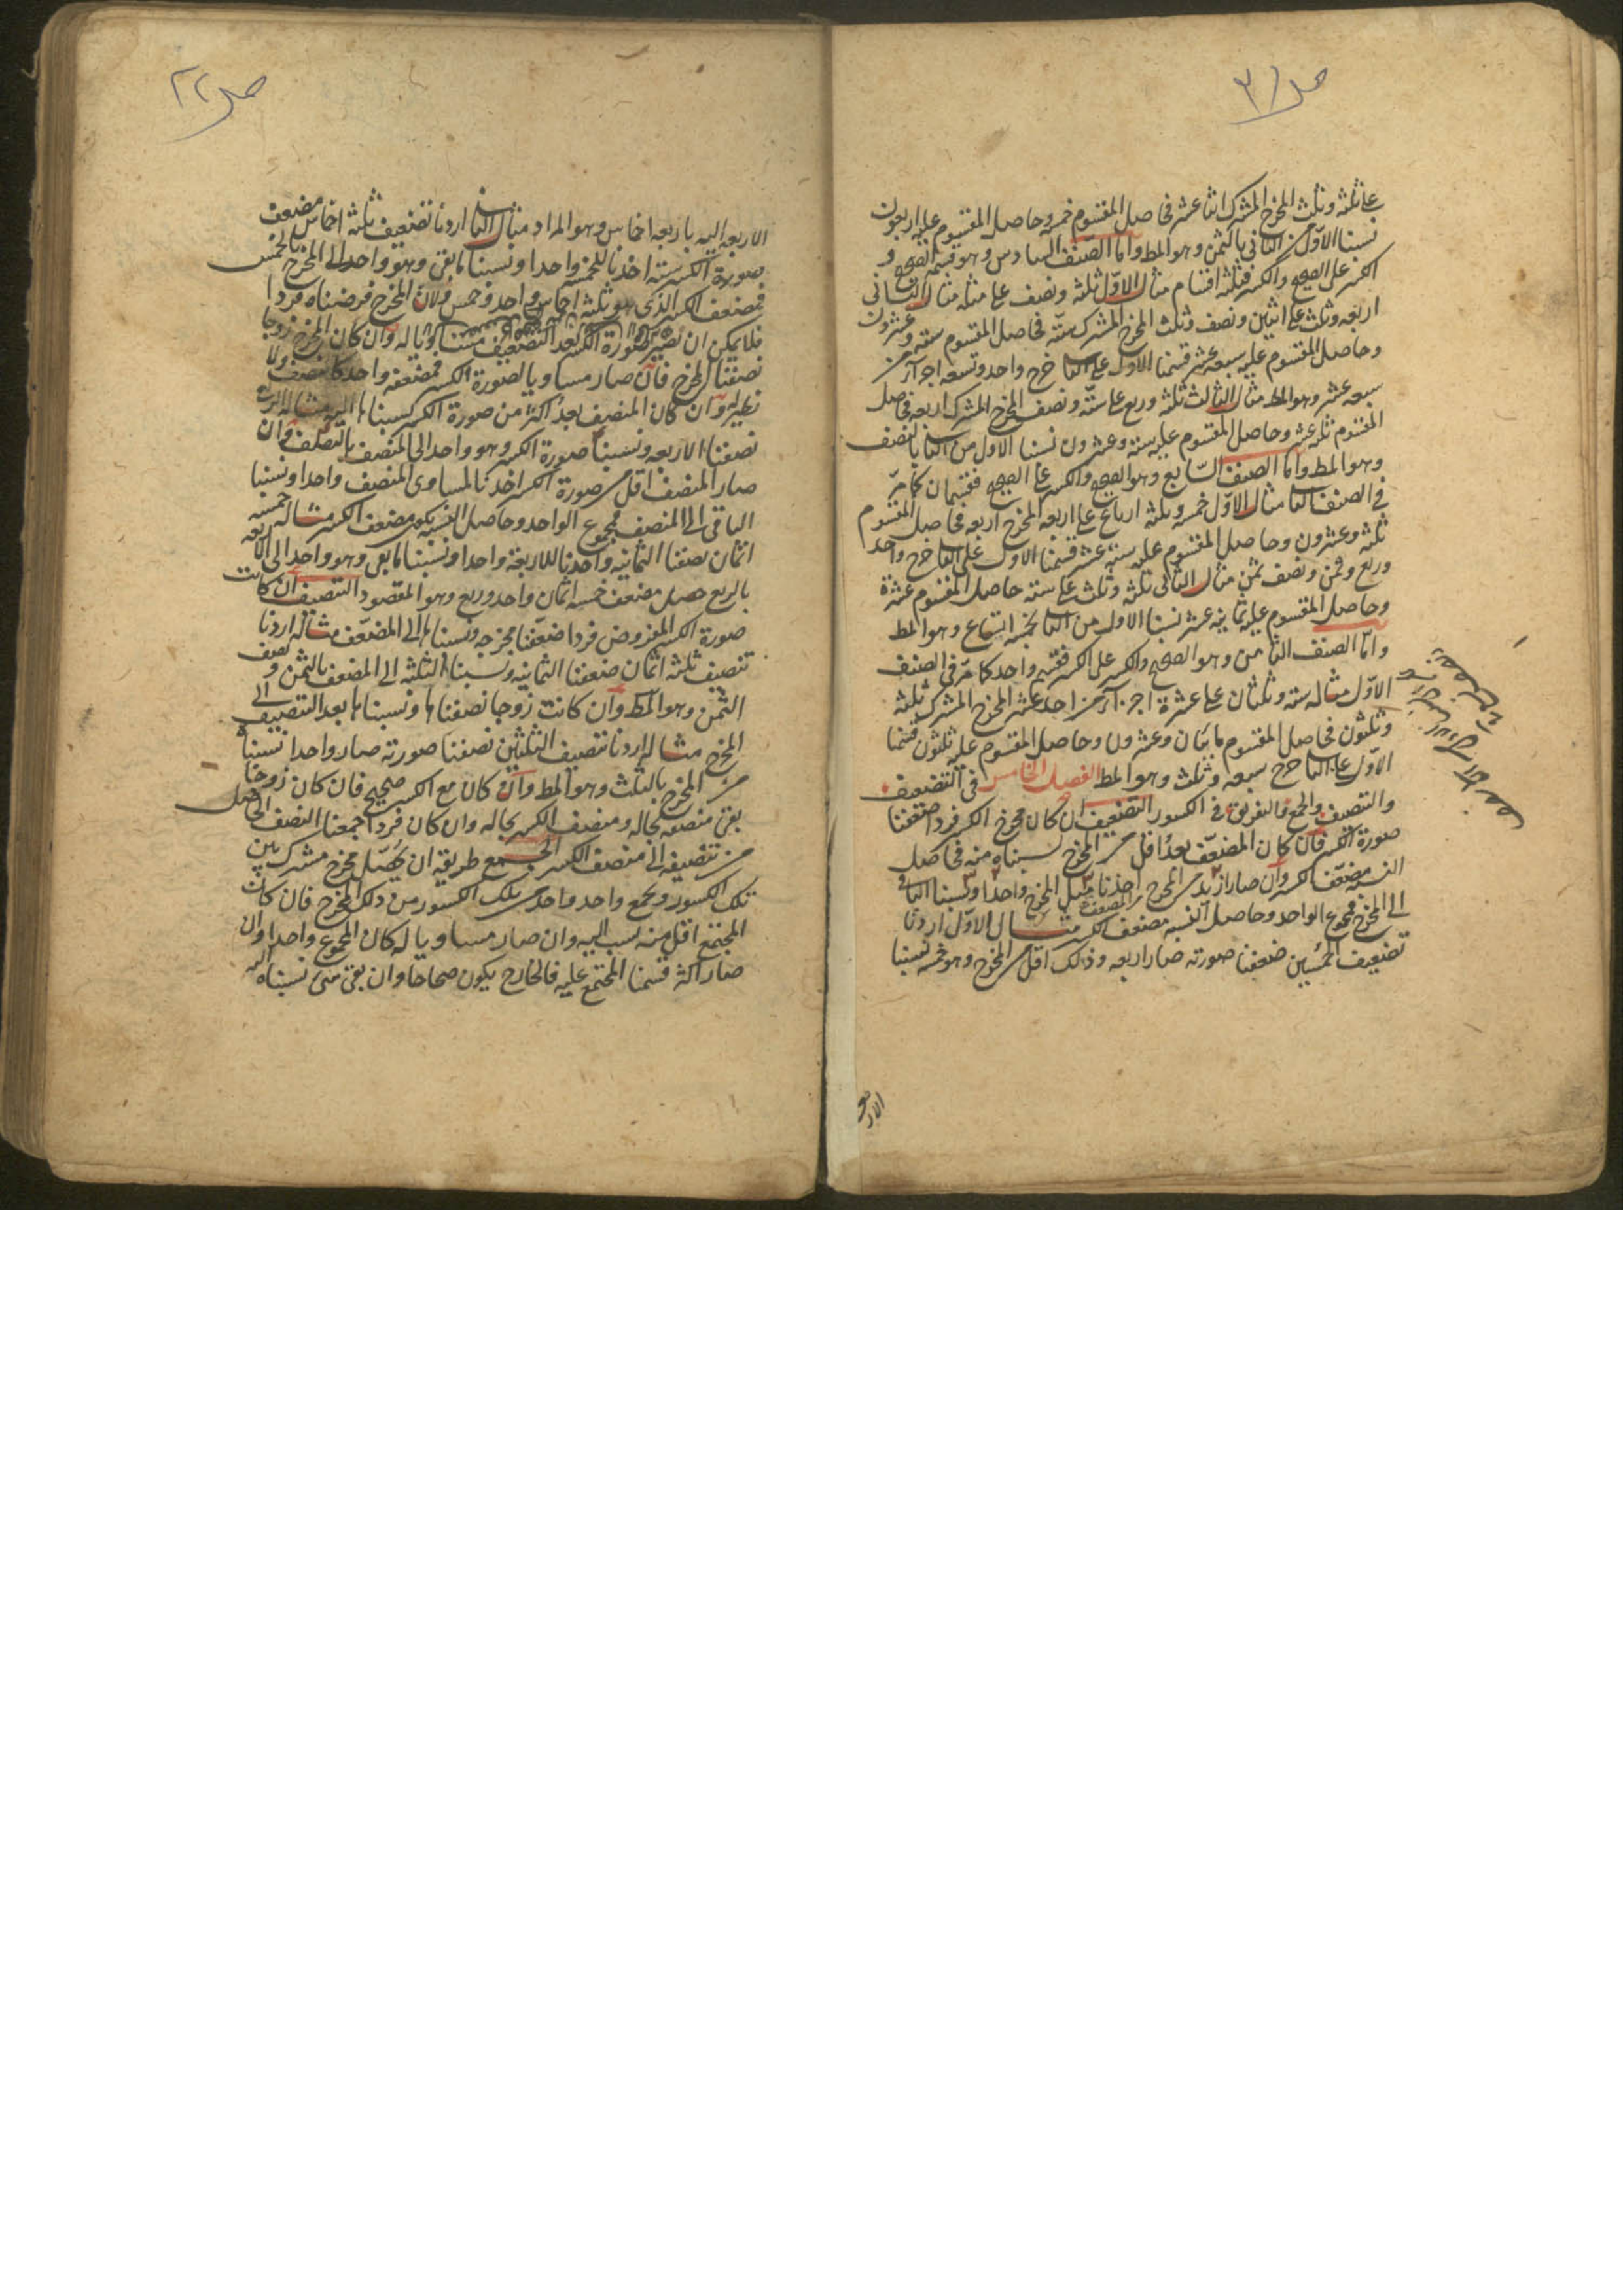 صـ ٣١
على ثلثة وثلث المخرج المشترك اثنا عشر فحاصل المقسوم خمسة وحاصل المقسوم عليه اربعون
نسبنا الاول من الثاني بالثمن وهو المط واما الصنف السادس وهو قسمة الصحيح و
الكسر على الصحيح والكسر فثلثة اقسام مثال الاول ثلثة ونصف على مثله مثال الثاني
اربعة وثلث على اثنين ونصف وثلث المخرج المشترك ستة فحاصل المقسوم ستة وعشرون
وحاصل المقسوم عليه سبعة عشر قسمنا الاول على الثا خرج واحد وتسعة اجزاء من
سبعة عشر وهو المط مثال الثالث ثلثة وربع على ستة ونصف المخرج المشترك اربعة فحاصل
المقسوم ثلثة عشر وحاصل المقسوم عليه ستة وعشرون نسبنا الاول من الثا بالنصف
وهو المط واما الصنف السابع وهو الصحيح والكسر على الصحيح فقسمان كما مر
في الصنف الثا مثال الاول خمسة وثلثة ارباع على اربعة المخرج اربعة فحاصل المقسوم
ثلثة وعشرون وحاصل المقسوم عليه ستة عشر قسمنا الاول على الثا خرج واحد
وربع وثمن ونصف ثمن مثال الثاني ثلثة وثلث على ستة حاصل المقسوم عشرة
وحاصل المقسوم عليه ثمانية عشر نسبنا الاول من الثا بخمسة اتساع وهو المط
واما الصنف الثامن وهو الصحيح والكسر على الكسر فقسم واحد كما مر في الصنف
الاول مثاله ستة وثلثان على عشرة اجزاء من احد عشر المخرج المشترك ثلثة
وثلثون فحاصل المقسوم مايتان وعشرون وحاصل المقسوم عليه ثلثون قسمنا
الاول على الثا خرج سبعة وثلث وهو المط الفصل الخامس في التضعيف
والتنصيف والجمع والتفريق في الكسور التضعيف ان كان مخرج الكسر فردا ضعفنا
صورة الكسر فان كان المضعف بعد اقل من المخرج نسبناه منه فحاصل
النسبة مضعف الكسر وان صار ازيد من المخرج اخذنا مثل المخرج واحدا ونسبنا الباقي
المضعف
الى المخرج فمجموع الواحد وحاصل النسبة مضعف الكسر مثال الاول اردنا
تضعيف الخمسين ضعفنا صورته صار اربعة وذلك اقل من المخرج وهو خمسة نسبنا
الاربعة
صـ ٢٢
الاربعة اليه باربعة اخماس وهو المراد مثال الثا اردنا تضعيف ثلثة اخماس مضعف
صورة الكسر ستة اخذنا للخمسة واحدا ونسبنا ما بقي وهو واحد الى المخرج بالخمس
فمضعف الكسر الذي هو ثلثة اخماس واحد وخمس ولان المخرج فرضناه فردا
فلا يمكن ان تصير صورة الكسر بعد التضعيف مساويا له وان كان المخرج زوجا
نصفنا المخرج فان صار مساويا لصورة الكسر فمضعفه واحد كنصف ولا
نظير له وان كان المنصف بعد اكثر من صورة الكسر نسبناها اليه مثاله الربع
نصفنا الاربعة ونسبنا صورة الكسر وهو واحد الى المنصف بالنصف وان
صار المنصف اقل من صورة الكسر اخذنا لمساوي المنصف واحدا ونسبنا
الباقي الى المنصف فمجموع الواحد وحاصل النسبة يكون مضعف الكسر مثاله خمسة
اثمان نصفنا الثمانية واخذنا للاربعة واحدا ونسبنا ما بقي وهو واحد الى الاربعة
بالربع حصل مضعف خمسة اثمان واحد وربع وهو المقصود التنصيف ان كانت
صورة الكسر المفروض فردا ضعفنا مخرجه ونسبناها الى المضعف مثاله اردنا
تنصيف ثلثة اثمان ضعفنا الثمانية ونسبنا الثلثة الى المضعف بالثمن ونصف
الثمن وهو المط وان كانت زوجا نصفناها ونسبناها بعد التنصيف الى
المخرج مثاله اردنا تنصيف الثلثين نصفنا صورته صار واحدا نسبناه
من المخرج بالثلث وهو المط وان كان مع الكسر صحيح فان كان زوجا
بقي منصفه بحاله ومنصف الكسر بحاله وان كان فردا جمعنا النصف الحاصل
من تنصيفه الى منصف الكسر الجمع طريقه ان يحصل مخرج مشترك بين
تلك الكسور ويجمع واحد واحد من تلك الكسور من ذلك المخرج فان كان
المجتمع اقل منه نسب اليه وان صار مساويا له كان المجموع واحدا وان
صار اكثر قسمنا المجتمع عليه فالخارج يكون صحاحا وان بقي شئ نسبناه اليه